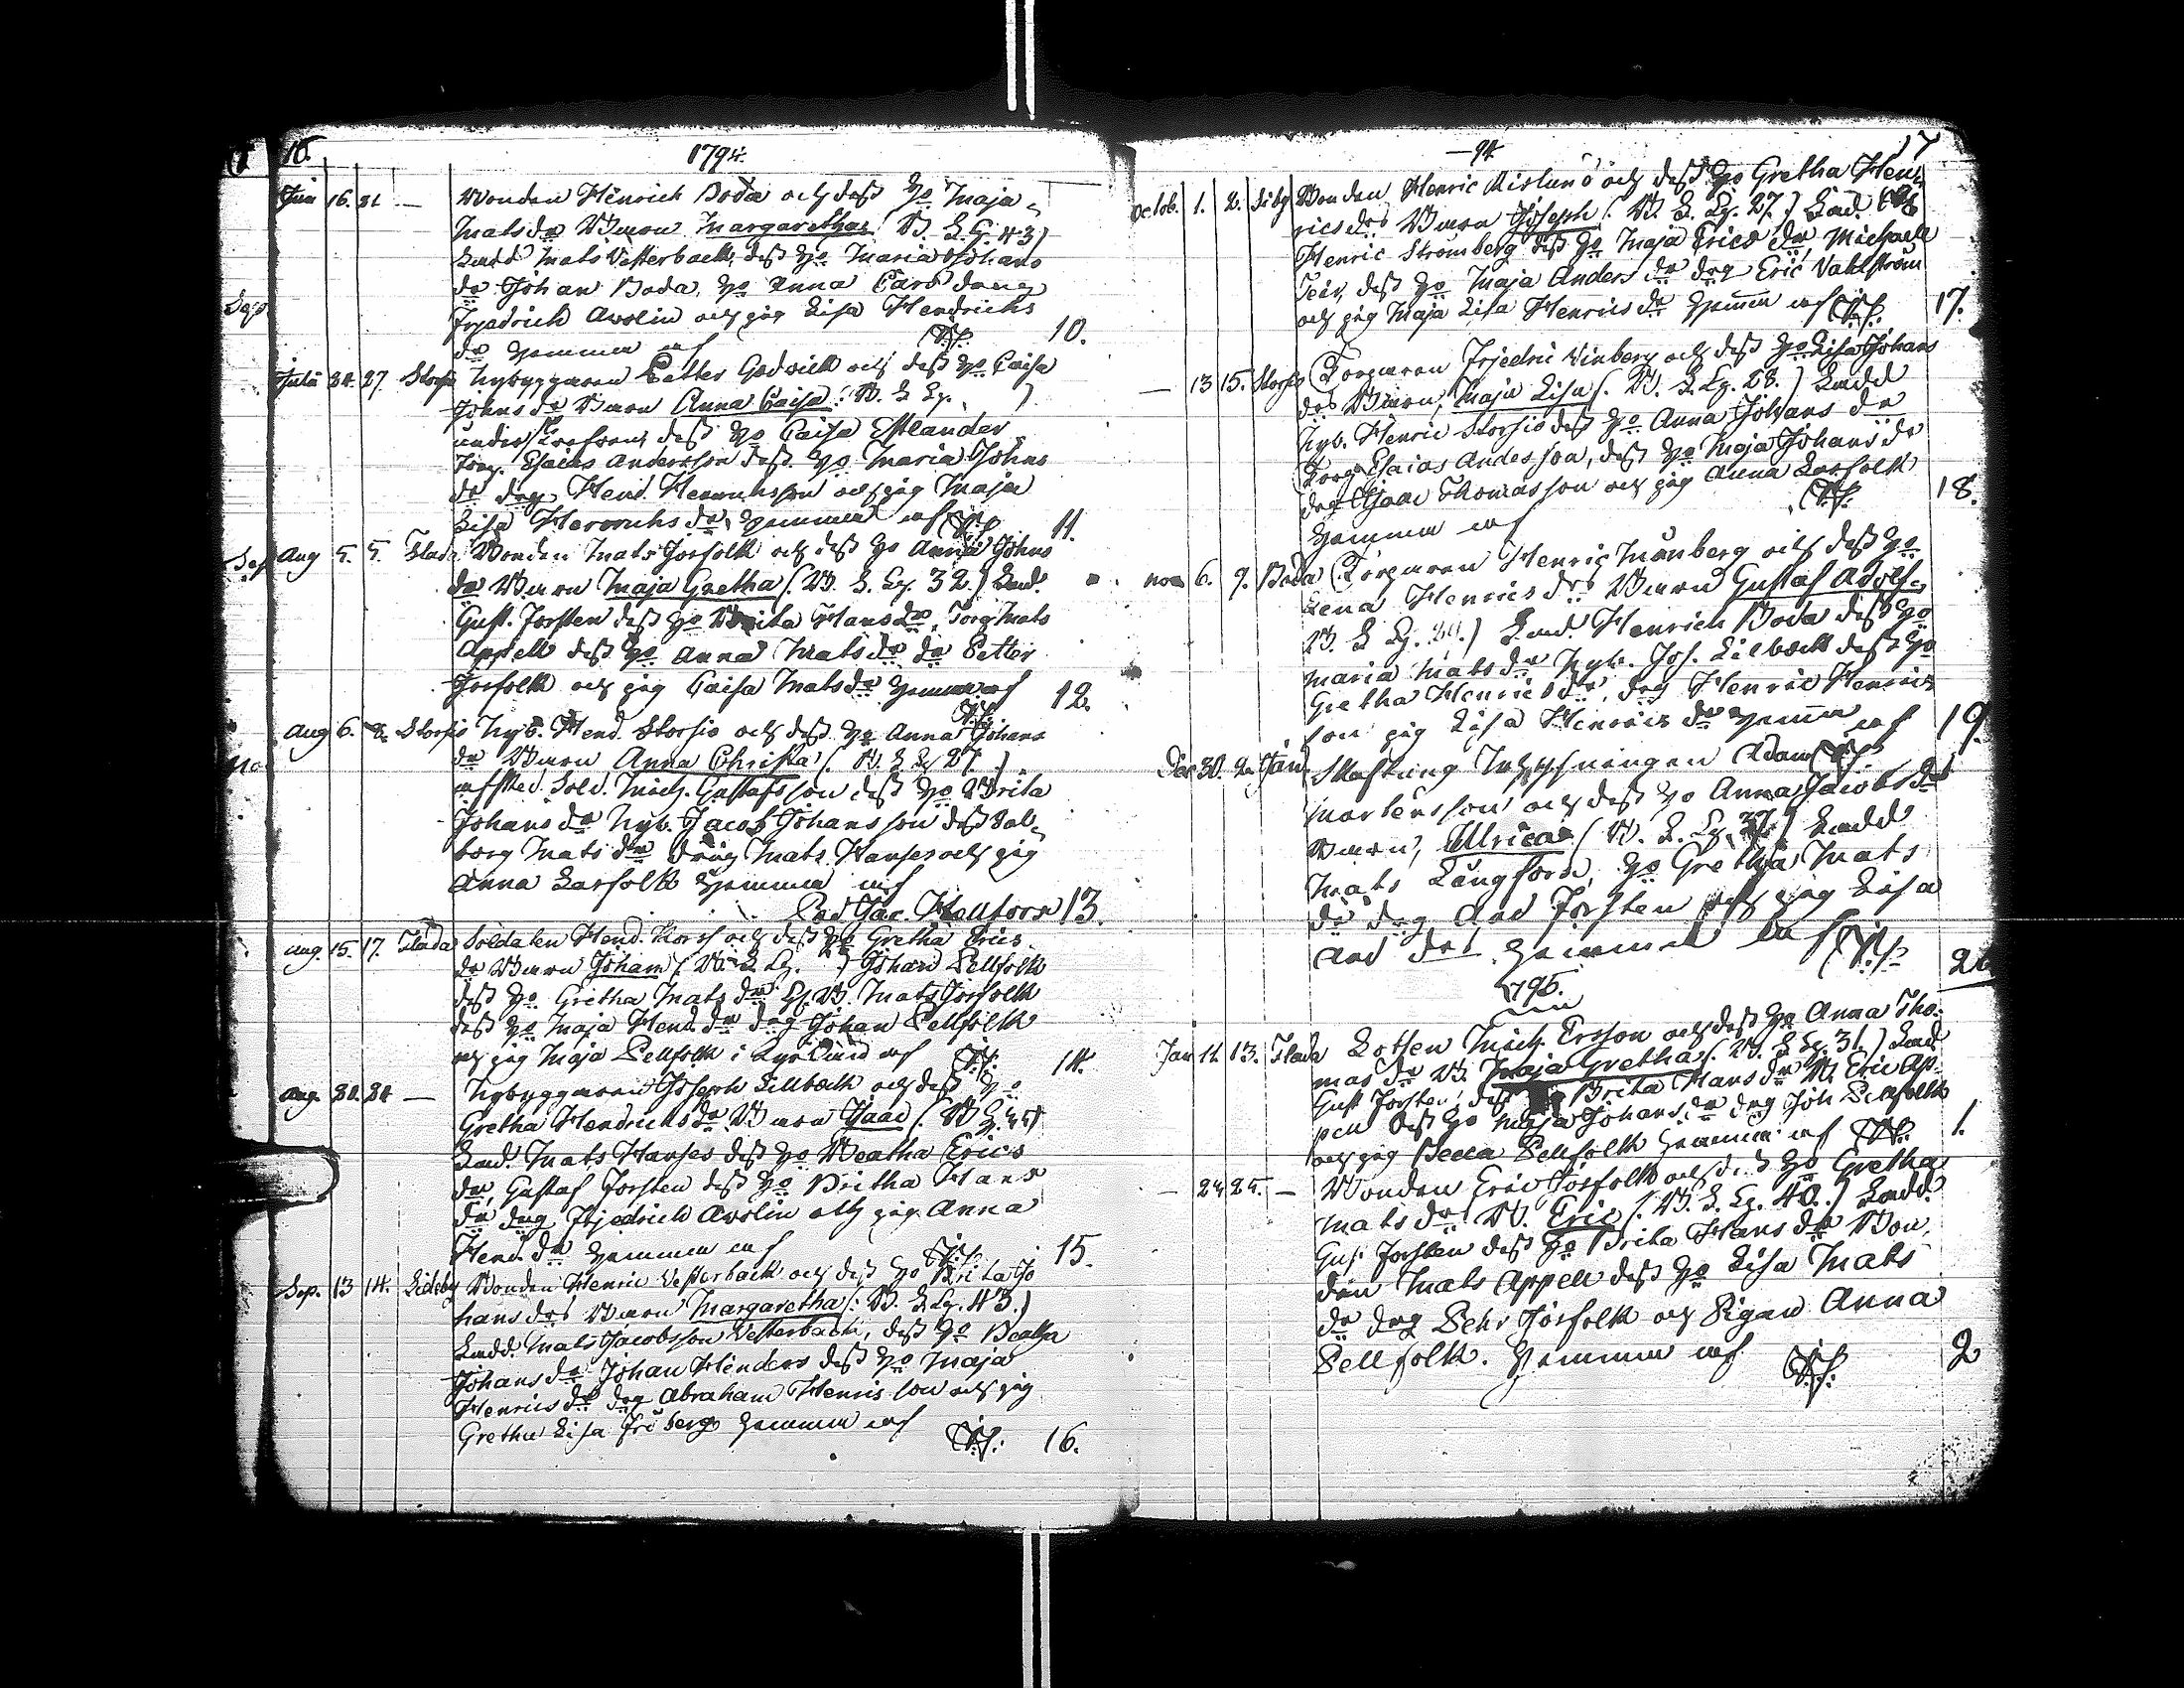 16.
1794.
Juni 16. 21. — Bonden Henrich Boda och dess Ho Maja
Mats dr Barn Margaretha B. L. Eg. 43)
Fadd Mats Vesterback, dess Ho Maria Johans
dr Johan Boda, Ho Anna Carls
Frjedrich Avolin och pig Lisa Hendrichs
dr Hemma 10.
Julii 24. 27. Storsjö Nybyggaren Petter Godwick och dess Ho Caisa
Johns dr Barn Anna Caisa (: B. L. Eg. )
dess Ho Caisa Estlander
Torp. Esaias Andersson dess Ho Maria Johns
dr drg Hend. Henrichsson och pig Maja
Lisa Henrichs dr, Hemma 11.
Aug 5. 5. Flada Bonden Mats Jorfolk och dess Ho Anna Johns
dr Barn Maja Gretha (: B. L. Eg. 32.) Fad.
Gust. Forsten dess Ho Brita Hans dr, Torp Mats
Appell dess Ho Anna Mats dr dr Petter
Jorfolk och pig Caisa Mats dr Hemma 12.
Aug 6. 8. Storsjö Nyb. Hend. Storsio och dess Ho Anna Johans
dr Barn Anna Christa (: B. L. Eg 27. )
afsked. Sold. Mich. Gustafsson dess Ho Brita
Johans dr Nyb. Jacob Johansson dess Val-
borg Mats dr dräng Mats Hanses och pig
Anna Larfolk Hemma
Jac. Hellfors 13.
Aug. 15. 17. Flada Soldaten Hend. Korf och dess Ho Gretha Erics
dr Barn Johan (: B. L. Eg. ) Johan Pellfolk
dess Ho Gretha Mats dr B. Mats Jorfolk
dess Ho Maja Hend. dr drg Johan Pellfolk
och pig Maja Pellfolk i 14.
Aug. 22. 24 — Nybyggaren Joseph Lillback och dess Ho
Gretha Hendrichs dr Barn Isaac (: B
Fad. Mats Hanses dess Ho Beatha Erics
dr, Gustaf Forsten dess Ho Britha Hans
dr drg Frjedrich Avolin och pig Anna
Hend. dr Hemma 15.
Sep. 13 14. Lideby Bonden Henric Vesterback och dess Ho Brita Jo
hans drs Barn Margaretha (: B. L. Eg. 43.)
Fadd. Mats Jacobsson Vesterback, dess Ho Beatha
Johans dr Johan Hinders dess Ho Maja
Henrics dr drg Abraham Henrisson och pig
Gretha Lisa Friberg Hemma 16.
— 94. 17
Octob. 1. 2. Bonden Henric och dess Ho Gretha Hen-
rics drs Barn Joseph (: B. L. Eg. 27.) Fad.
Henric Stromberg dess Ho Maja Erics dr, Michaell
Teir, dess Ho Maja Anders dr drg Eric Vahlstrom
och pig Maja Lisa Henrics dr Hemma 17.
— 13 15. Storsjö Torparen Frjedric Vinberg och dess Ho Lisa Johans
drs Barn, Maja Lisa (: B. L. Eg. 28.) Fadd
Nyb. Henric Storsio dess Ho Anna Johans dr
Torp Esaias Andesson, dess Ho Maja Johans dr
drg Isaac Thomasson och pig Anna Larfolk 18.
Hemma
Nov 6. 9. Boda Torparen Henric Munberg och dess Ho
Lena Henrics drs Barn Gustaf Adolf
B. L. Eg. ) Fad. Henrich Boda dess Ho
Maria Mats dr Nyb. Jos. Lilback dess Ho
Gretha Henrics dr, drg Henric Henrics
son pig Lisa Henrics dr Hemma 19.
Dec 30. 2. Jan Adam
Mårtensson och dess Ho Anna Jacobs dr
Barn, Ulrica (: B. L. Eg. 37.) Fadd
Mats Långfors, Ho Gretha Mats
dr drg And Forsten och pig Lisa
And drs Hemma 20
1795.
Jan 11. 13. Flada Lotsen Mich. Ersson och dess Ho Anna Tho-
mas dr B. Maja Gretha (: B. L. Eg. 31.) Fad
Gust Forsten, dess Ho Brita Hans dr B. Eric Ap-
pell dess Ho Maja Johans dr drg Joh Pellfolk
och pig Becca Pellfolk Hemma 1.
— 24 25. — Bonden Eric Jorfolk och dess Ho Gretha
Mats dr B. Eric (: B. L. Eg. 40.) Fadd.
Gus. Forsten dess Ho Brita Hans dr Bon-
den Mats Appell dess Ho Lisa Mats
dr drg Pehr Jorfolk och Pigan Anna
Pellfolk. Hemma 2